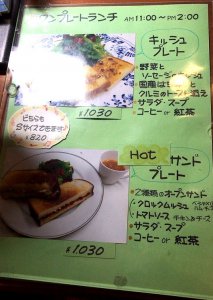 ワンプレートランチ AM 11:00〜PM 2:00
キッシュ
プレート
・野菜と
ソーセージのキッシュ
・国産はちみつと
クルミのトースト添え
・サラダ・スープ
・コーヒー or 紅茶
¥1030
どちらも
Sサイズできます♪
¥820
Hotサンド
プレート
・2種類のオープンサンド
・クロックムッシュ
・トマトソース チキン&チーズ
・サラダ
・スープ
・コーヒー or 紅茶
¥1.030